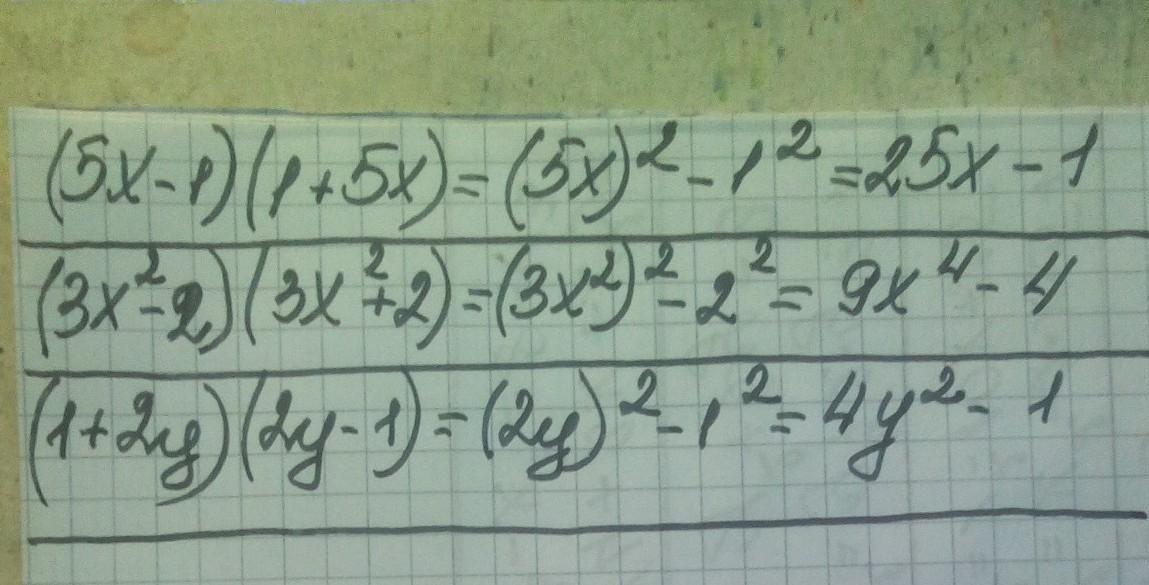 (5x-1)(1+5x)=(5x)²-1²=25x-1
(3x²-2)(3x²+2)=(3x²)²-2²=9x⁴-4
(1+2y)(2y-1)=(2y)²-1²=4y²-1